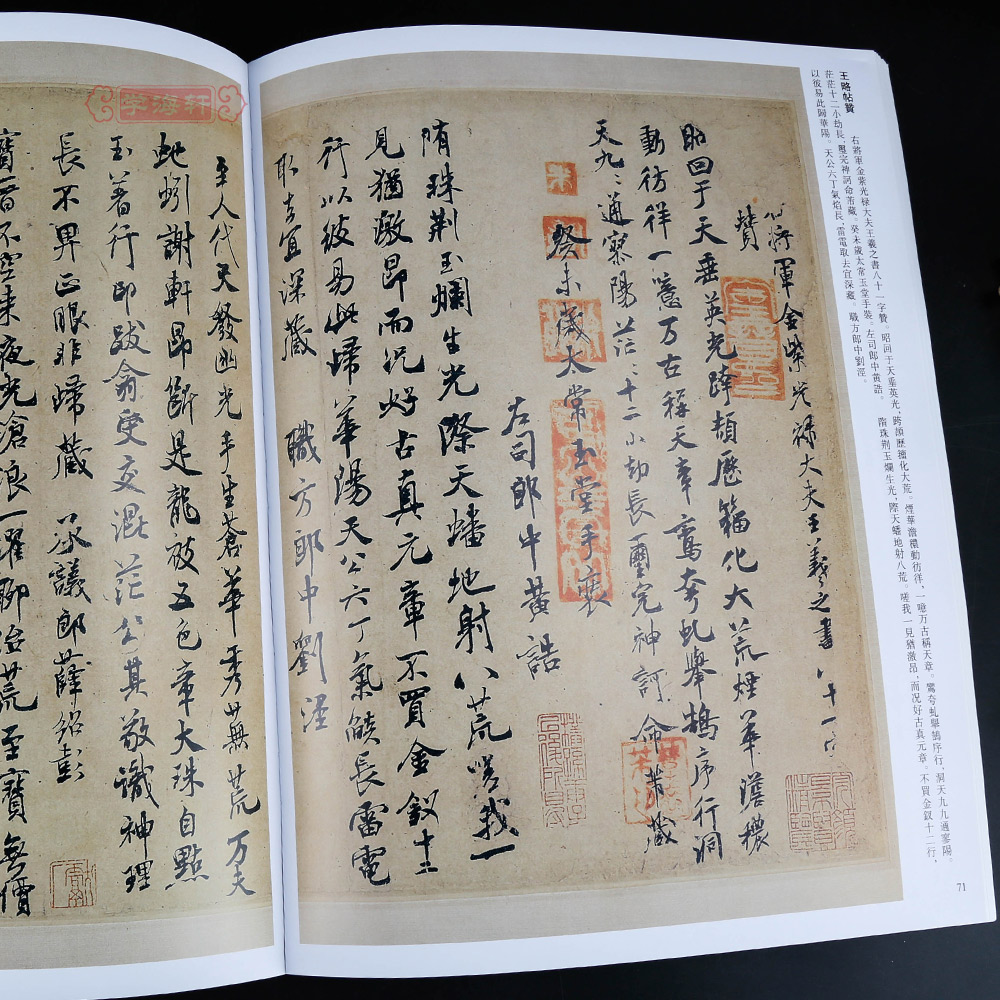 王略帖贊
右將軍金紫光祿大夫王羲之書八十一字贊。昭回于天垂英光,跨頡歷籀化大荒。煙華澹穠動彷徉,一噫万古稱天章。鸞夸虬舉鵠序行,洞天九九通寥陽。
茫茫十二小劫長,璽完神訶命芾藏。癸未歲太常玉堂手裝。左司郎中黃誥。 隋珠荆玉爛生光,際天蟠地射八荒。嗟我一見猶激昂,而况好古真元章。不買金釵十二行,
以彼易此歸華陽。天公六丁氣焰長,雷電取去宜深藏。職方郎中劉涇。
71
右將軍金紫光祿大夫王羲之書八十一字
贊
昭回于天垂英光跨頡歷籀化大荒煙華澹穠
動彷徉一噫万古稱天章鸞夸虬舉鵠序行洞
天九〻通寥陽茫〻十二小劫長璽完神訶命芾藏
癸未歲太常玉堂手裝
左司郎中黃誥
隋珠荆玉爛生光際天蟠地射八荒嗟我一
見猶激昂而况好古真元章不買金釵十二
行以彼易此歸華陽天公六丁氣燄長雷電
取去宜深藏
職方郎中劉涇
至人代天發幽光手生蒼華秀無荒万夫
虵蚓謝軒昂斷是龍被五色章大珠自點
玉著行卽跋翕受交混茫公其敬識神理
長不畀正眼非歸藏 承議郎薛紹彭
寶晉不空來夜光滄浪一濯聊治荒至寶無價
字海軒